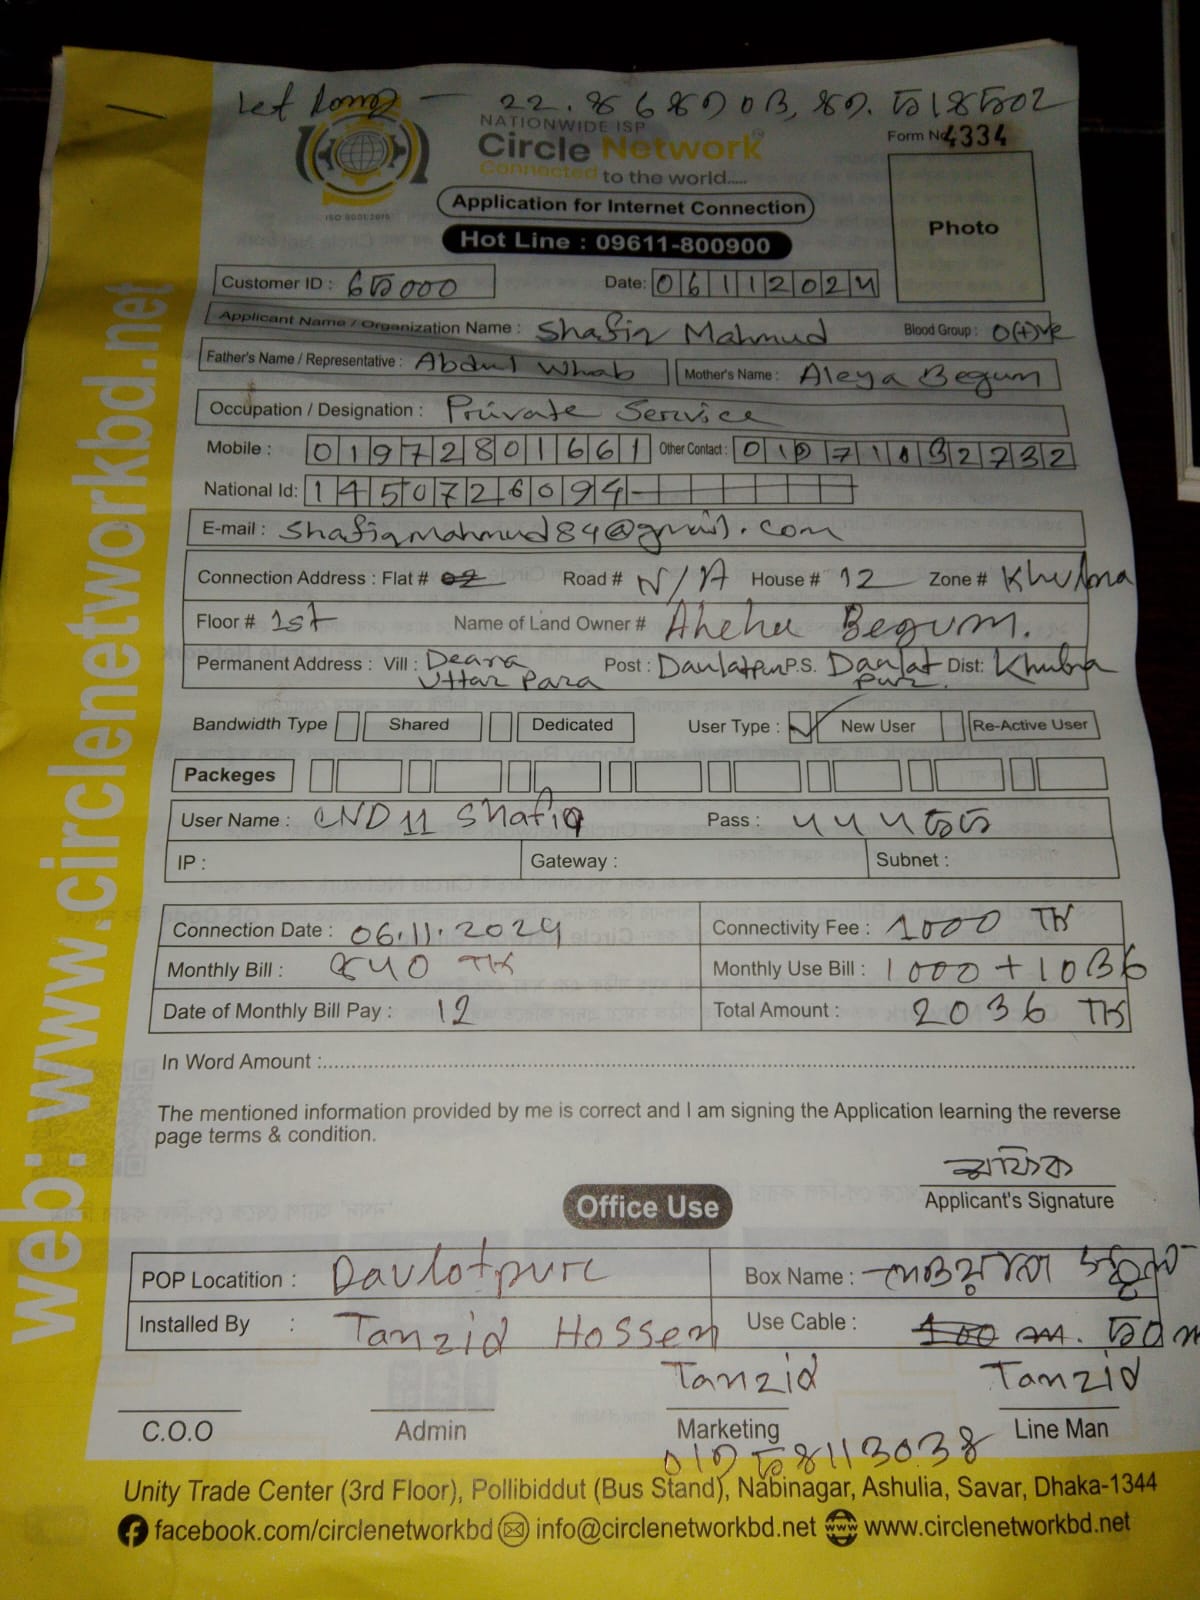 22.
NATIONWIDE ISP
Circle Network
Connected to the world.....
Form No 4334
ISO 9001:2015
Application for Internet Connection
Photo
Hot Line : 09611-800900
Customer ID :
Date: 06112024
Applicant Name / Organization Name : Shafiq Mahmud Blood Group : O(+)ve
Father's Name / Representative : Abdul Whab Mother's Name : Aleya Begum
Occupation / Designation : Private Service
Mobile : 01972801661 Other Contact :
National Id: 1450726094
E-mail : shafiqmahmud84@gmail.com
Connection Address : Flat # Road # N/A House # 12 Zone # Khulna
Floor # 1st Name of Land Owner # Begum.
Permanent Address : Vill : Deana Uttar Para Post : Daulatpur P.S. Daulat pur. Dist: Khulna
Bandwidth Type Shared Dedicated User Type : ✓ New User Re-Active User
Packeges
User Name : CND11 Shafiq Pass :
IP : Gateway : Subnet :
Connection Date : 06.11.2024 Connectivity Fee : 1000 TK
Monthly Bill : TK Monthly Use Bill : 1000+1036
Date of Monthly Bill Pay : 12 Total Amount : 2036 TK
In Word Amount :
The mentioned information provided by me is correct and I am signing the Application learning the reverse
page terms & condition.
শফিক
Applicant's Signature
Office Use
POP Locatition : Davlotpure Box Name :
Installed By : Tanzid Hossen Use Cable :
Tanzid Tanzid
C.O.O Admin Marketing Line Man
Unity Trade Center (3rd Floor), Pollibiddut (Bus Stand), Nabinagar, Ashulia, Savar, Dhaka-1344
facebook.com/circlenetworkbd info@circlenetworkbd.net www.circlenetworkbd.net
web: www.circlenetworkbd.net